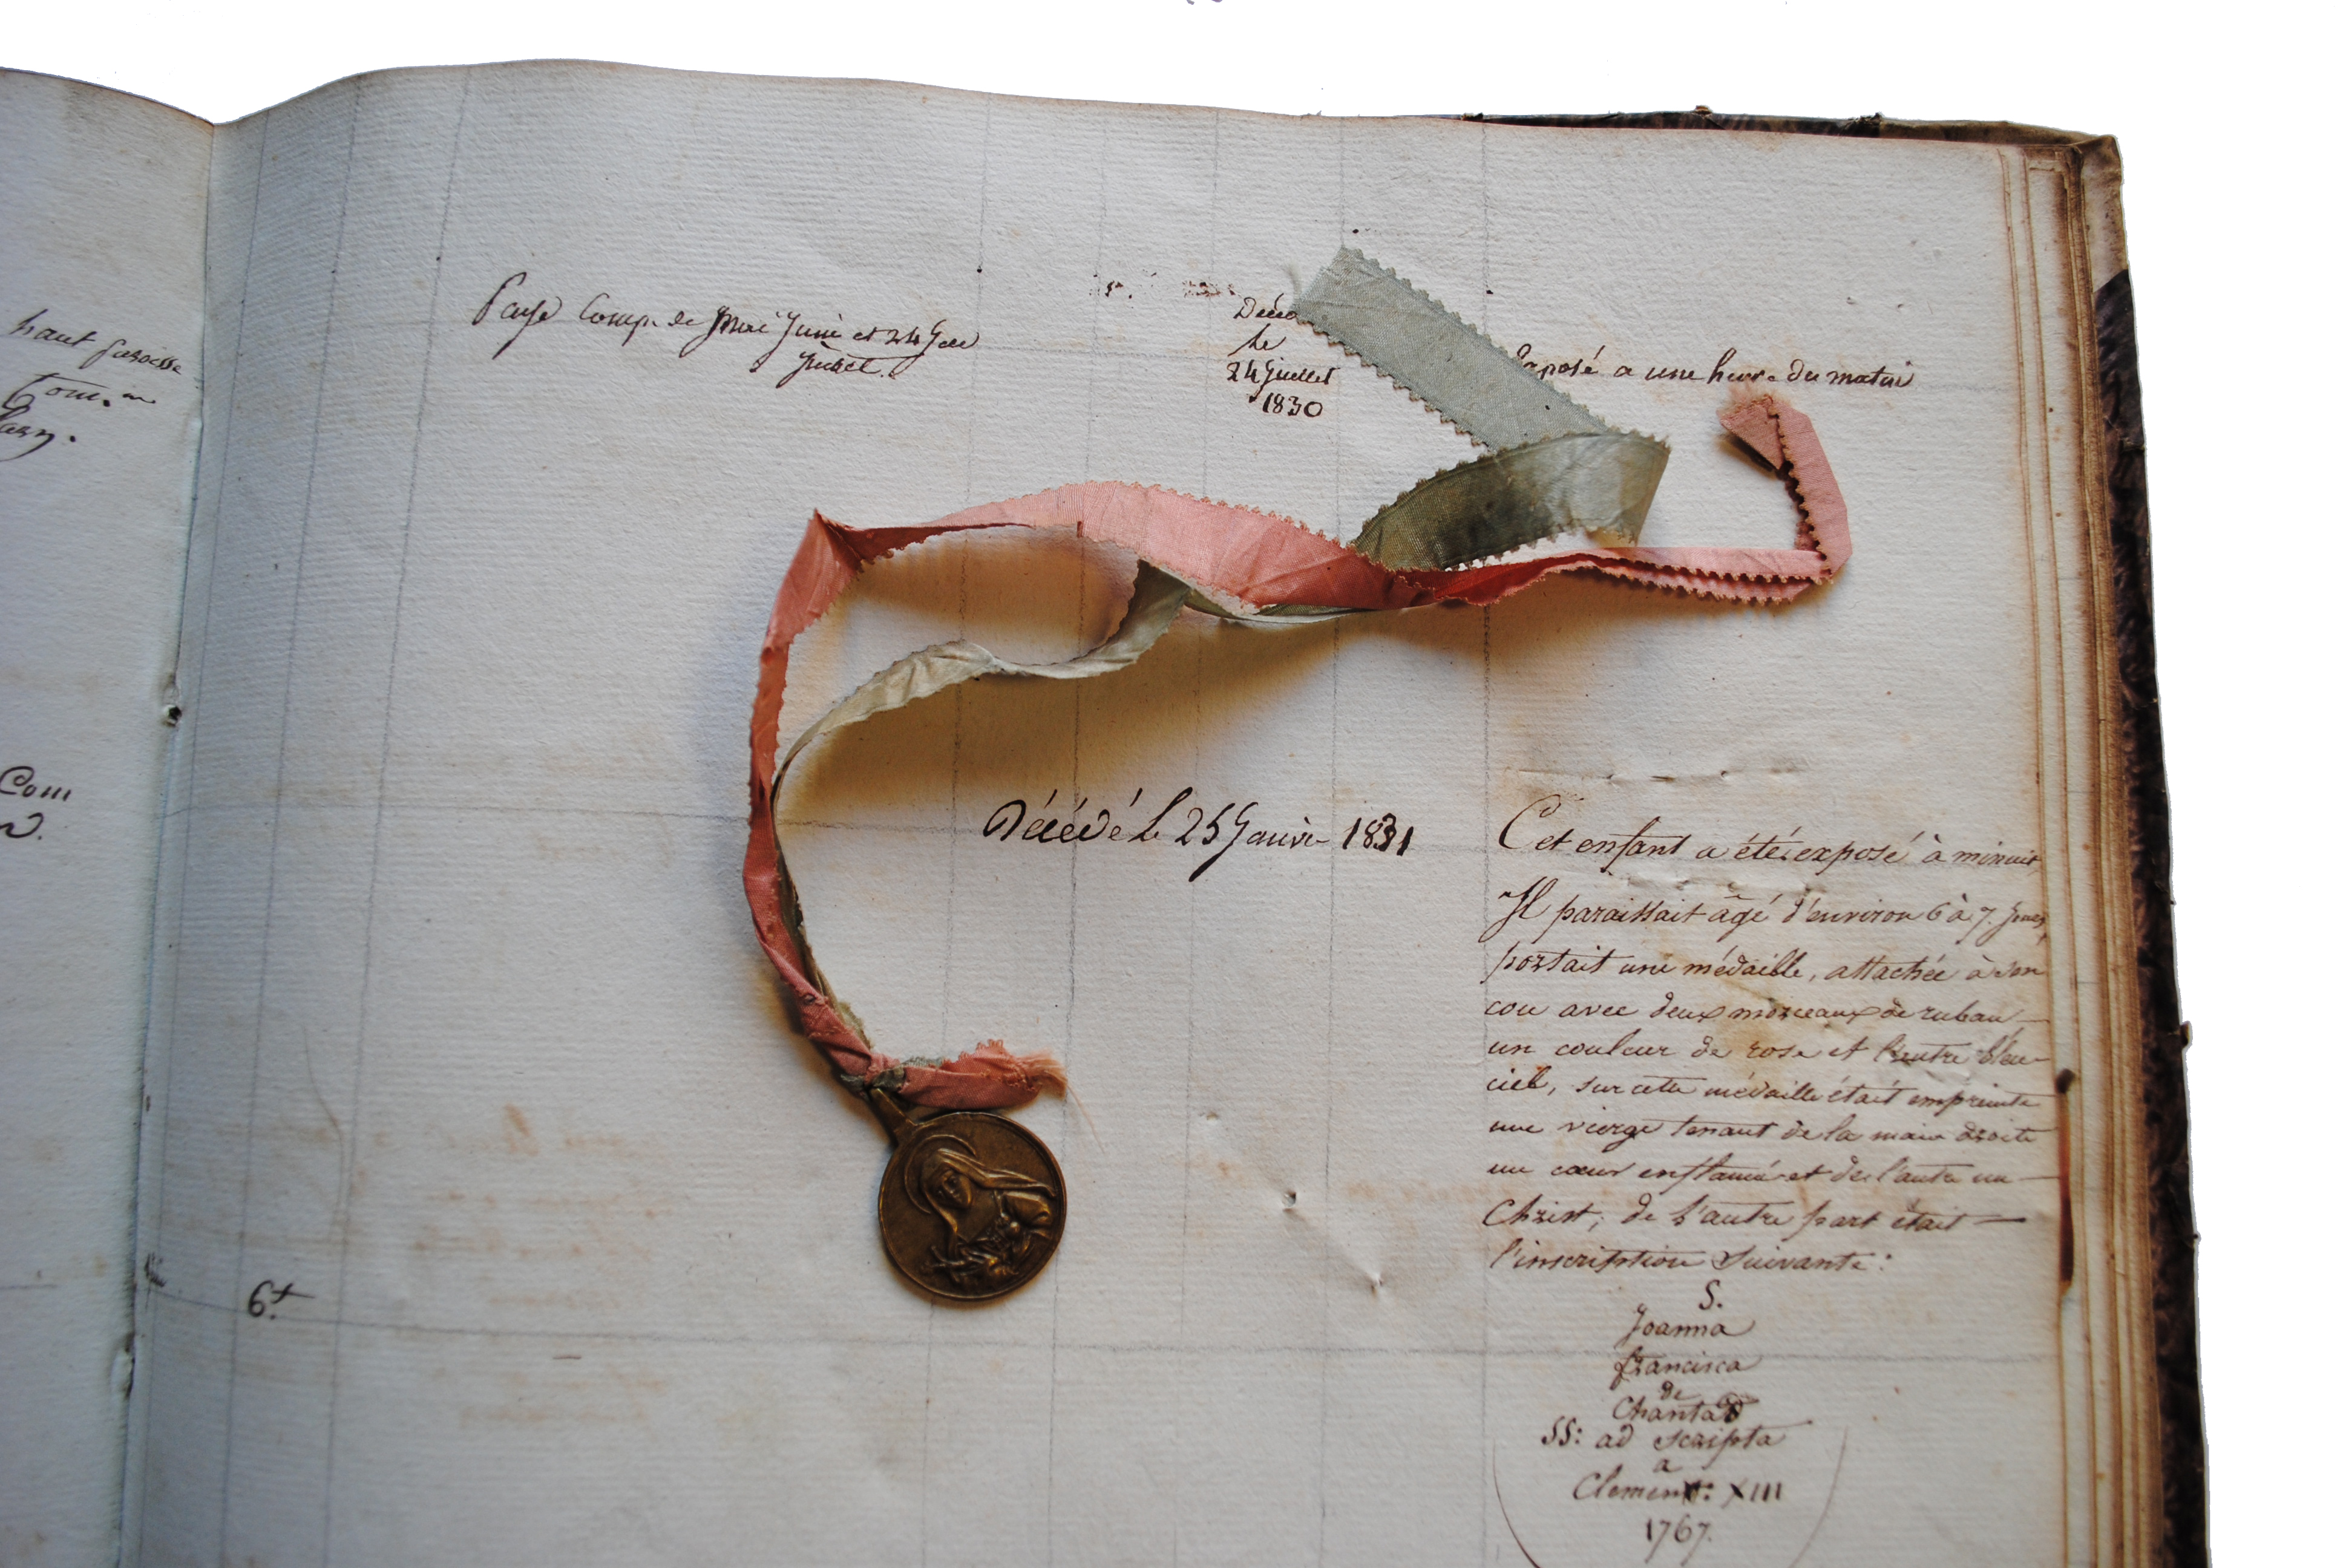 haut paroisse
Com
Payé Comp. de Mai Juin et 24 Jrs
Juillet.
Décé
le
24 Juillet
1830
Exposé a une heure du matin
Décédé le 25 Janvr 1831
Cet enfant a été exposé à minuit,
Il paraissait âgé d'environ 6 à 7 jours,
portait une médaille, attachée à son
cou avec deux morceaux de ruban
un couleur de rose et l'autre bleu
ciel, sur cette médaille était empreinte
une vierge tenant de la main droite
un cœur enflamé et de l'autre un
Christ; de l'autre part était
l'inscription suivante:
S.
Joanna
francisca
de
Chantad
SS: ad scripta
a
Clement: XIII
1767.
6.